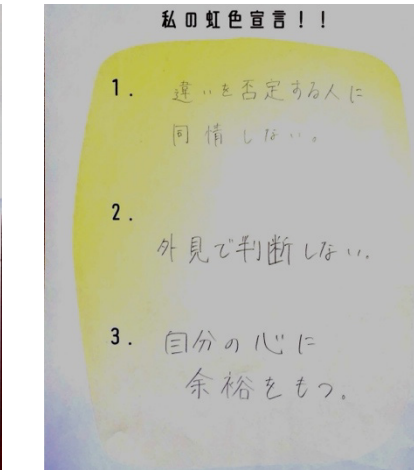 私の虹色宣言！！
1. 違いを否定する人に
同情しない。
2.
外見で判断しない.
3. 自分の心に
余裕をもつ。